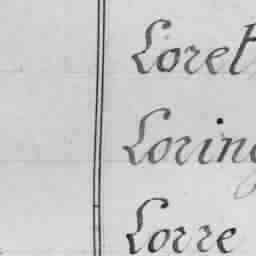 Loret
Loring
Lorre